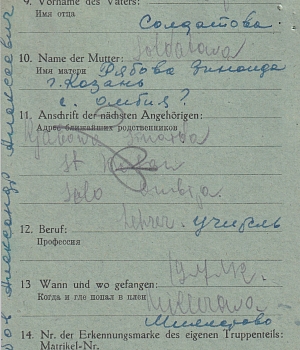 9. Vorname des Vaters:
Имя отца
Солдатова.
Soldatowa
10. Name der Mutter:
Имя матери
Рябова Зинаида
г. Казань
с. Омбия?
11. Anschrift der nächsten Angehörigen:
Адрес ближайших родственников
Rjabowa
st Kasan
Selo
12. Beruf:
Профессия
Lehrer. учитель
13 Wann und wo gefangen:
Когда и где попал в плен
Миллерово
14. Nr. der Erkennungsmarke des eigenen Truppenteils:
Matrikel-Nr.
Александр Алексеевич